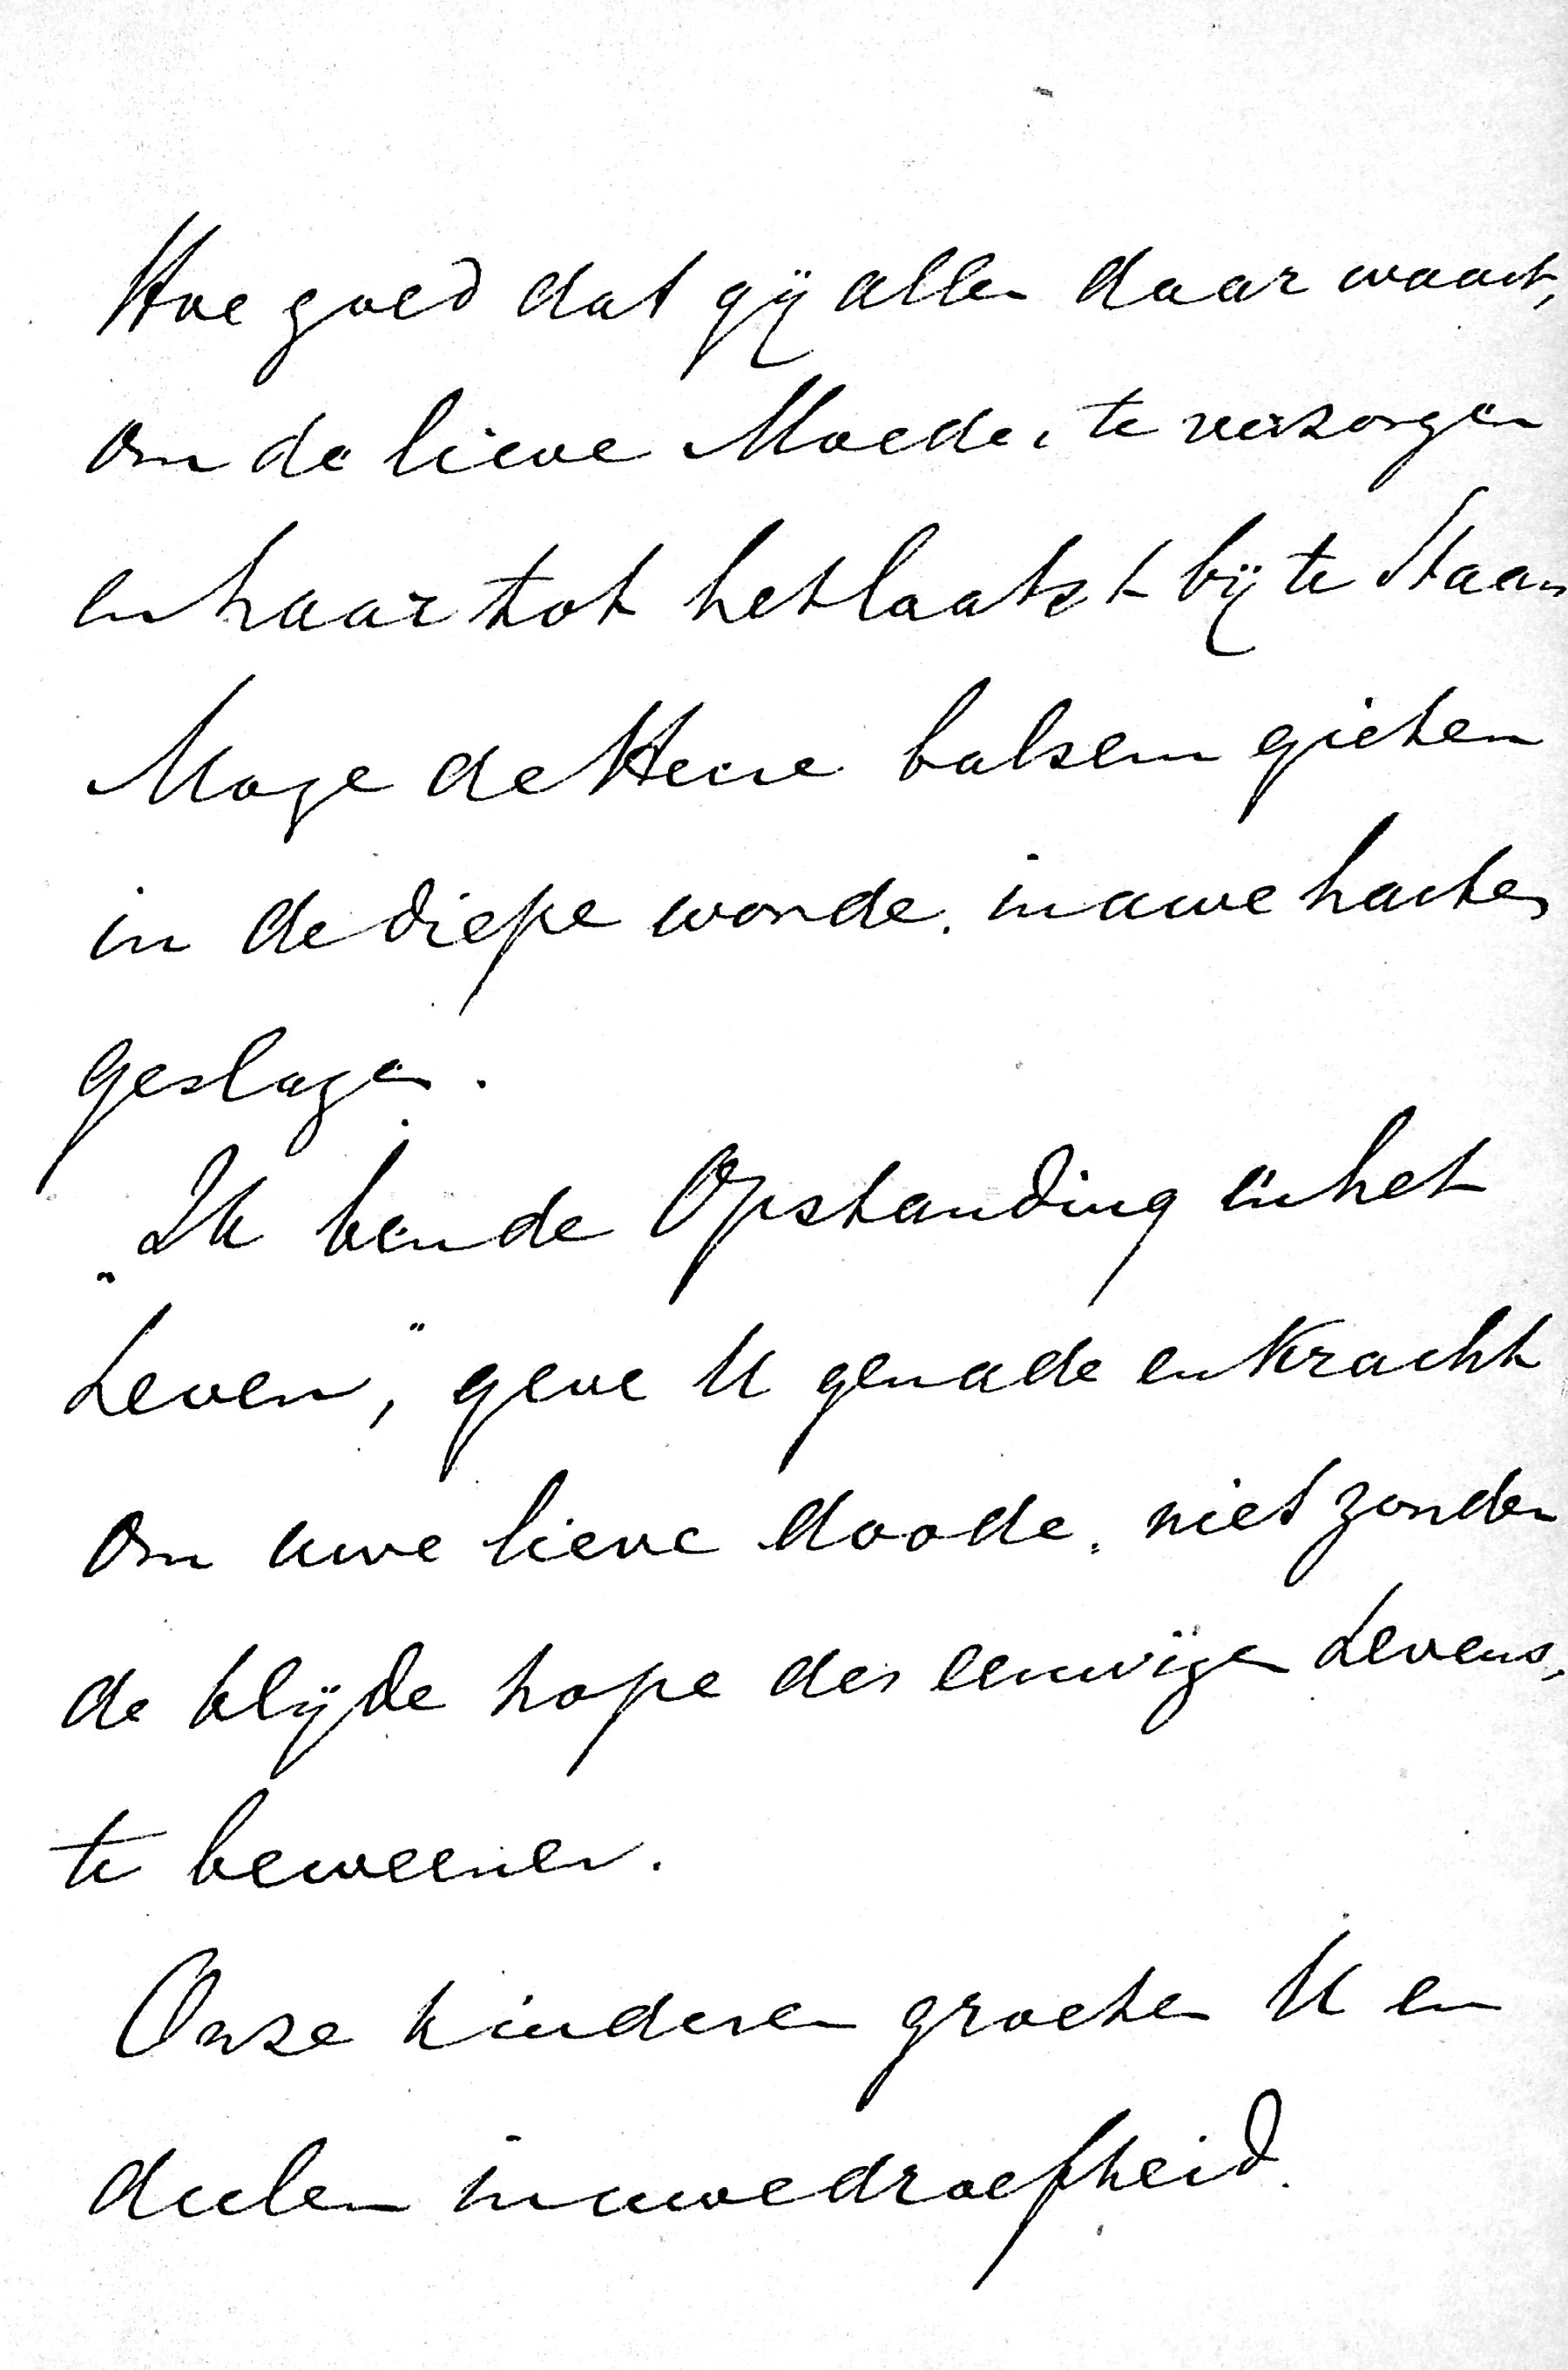 Hoe goed dat gij allen daar waart,
om de lieve Moeder te verzorgen
en haar tot het laatst bij te staan
Moge de Heere balsem gieten
in de diepe wonde, in uwe harten
geslagen.
„Ik ben de Opstanding en het
Leven," geve U genade en kracht
om uwe lieve doode, niet zonder
de blijde hope des eeuwigen Levens,
te beweenen.
Onze kinderen groeten U en
deelen in uwe droefheid.